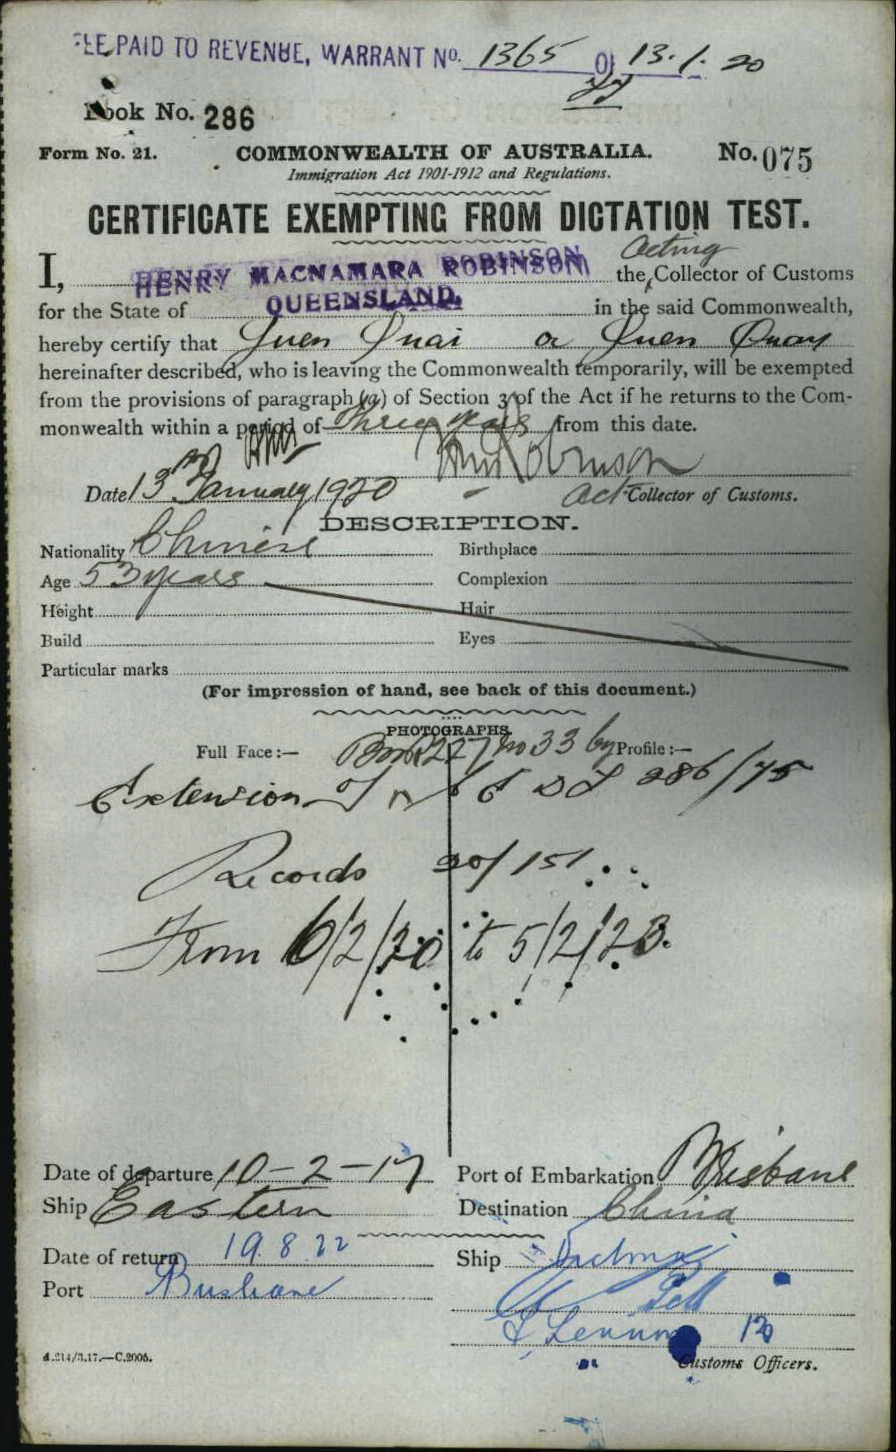 FEE PAID TO REVENUE, WARRANT No. 1365 OF 13.1.20
Book No. 286
Form No. 21. COMMONWEALTH OF AUSTRALIA. No. 075
Immigration Act 1901-1912 and Regulations.
CERTIFICATE EXEMPTING FROM DICTATION TEST.
I, HENRY MACNAMARA ROBINSON the Acting Collector of Customs
for the State of QUEENSLAND. in the said Commonwealth,
hereby certify that Juen Quai or Juen Quay
hereinafter described, who is leaving the Commonwealth temporarily, will be exempted
from the provisions of paragraph (a) of Section 3 of the Act if he returns to the Com-
monwealth within a period of Three years from this date.
Date 13th January 1920 Act Collector of Customs.
DESCRIPTION.
Nationality Chinese Birthplace
Age 53 years Complexion
Height Hair
Build Eyes
Particular marks
(For impression of hand, see back of this document.)
PHOTOGRAPHS.
Full Face:— Book 227 No 33 by Profile:—
Extension of C E D T 286/75
Records 20/151
From 6/2/20 to 5/2/23.
Date of departure 10-2-17 Port of Embarkation Brisbane
Ship Eastern Destination China
Date of return 19.8.22 Ship
Port Brisbane
Customs Officers.
4.214/3.17.—C.2006.